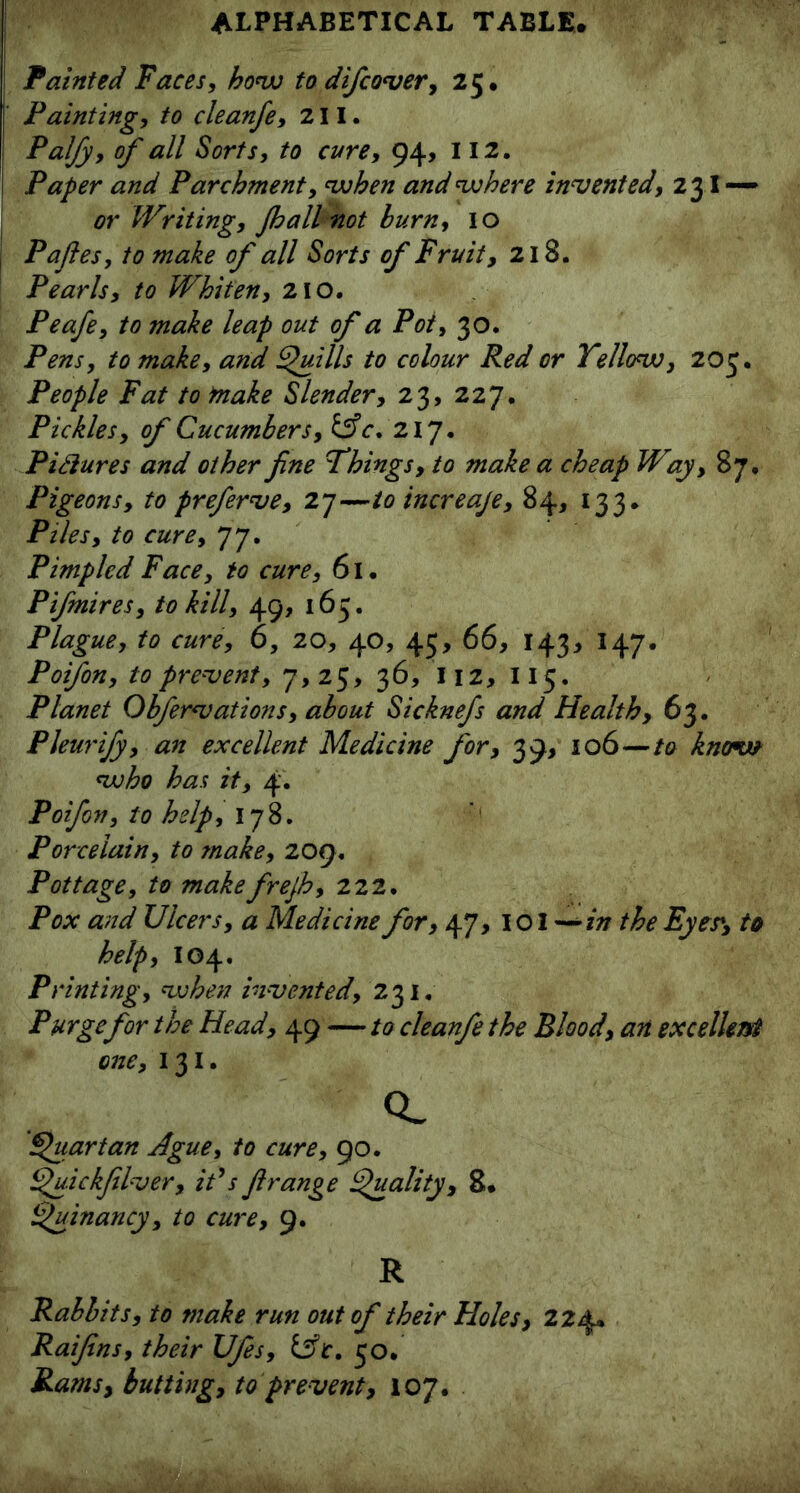 ALPHABETICAL TABLE.
Painted Faces, how to diſcover, 25.
Painting, to cleanſe, 211.
Palſy, of all Sorts, to cure, 94, 112.
Paper and Parchment, when and where invented, 231—
or Writing, ſhall not burn, 10
Paſtes, to make of all Sorts of Fruit, 218.
Pearls, to Whiten, 210.
Peaſe, to make leap out of a Pot, 30.
Pens, to make, and Quills to colour Red or Yellow, 205.
People Fat to make Slender, 23, 227.
Pickles, of Cucumbers, &c. 217.
Pictures and other fine Things, to make a cheap Way, 87.
Pigeons, to preſerve, 27—to increaſe, 84, 133.
Piles, to cure, 77.
Pimpled Face, to cure, 61.
Piſmires, to kill, 49, 165.
Plague, to cure, 6, 20, 40, 45, 66, 143, 147.
Poiſon, to prevent, 7, 25, 36, 112, 115.
Planet Obſervations, about Sickneſs and Health, 63.
Pleuriſy, an excellent Medicine for, 39, 106—to know
who has it, 4.
Poiſon, to help, 178.
Porcelain, to make, 209.
Pottage, to make freſh, 222.
Pox and Ulcers, a Medicine for, 47, 101—in the Eyes, to
help, 104.
Printing, when invented, 231.
Purge for the Head, 49—to cleanſe the Blood, an excellent
one, 131.
Q
Quartan Ague, to cure, 90.
Quickſilver, it's ſtrange Quality, 8.
Quinancy, to cure, 9.
R
Rabbits, to make run out of their Holes, 224.
Raiſins, their Uſes, &c. 50.
Rams, butting, to prevent, 107.